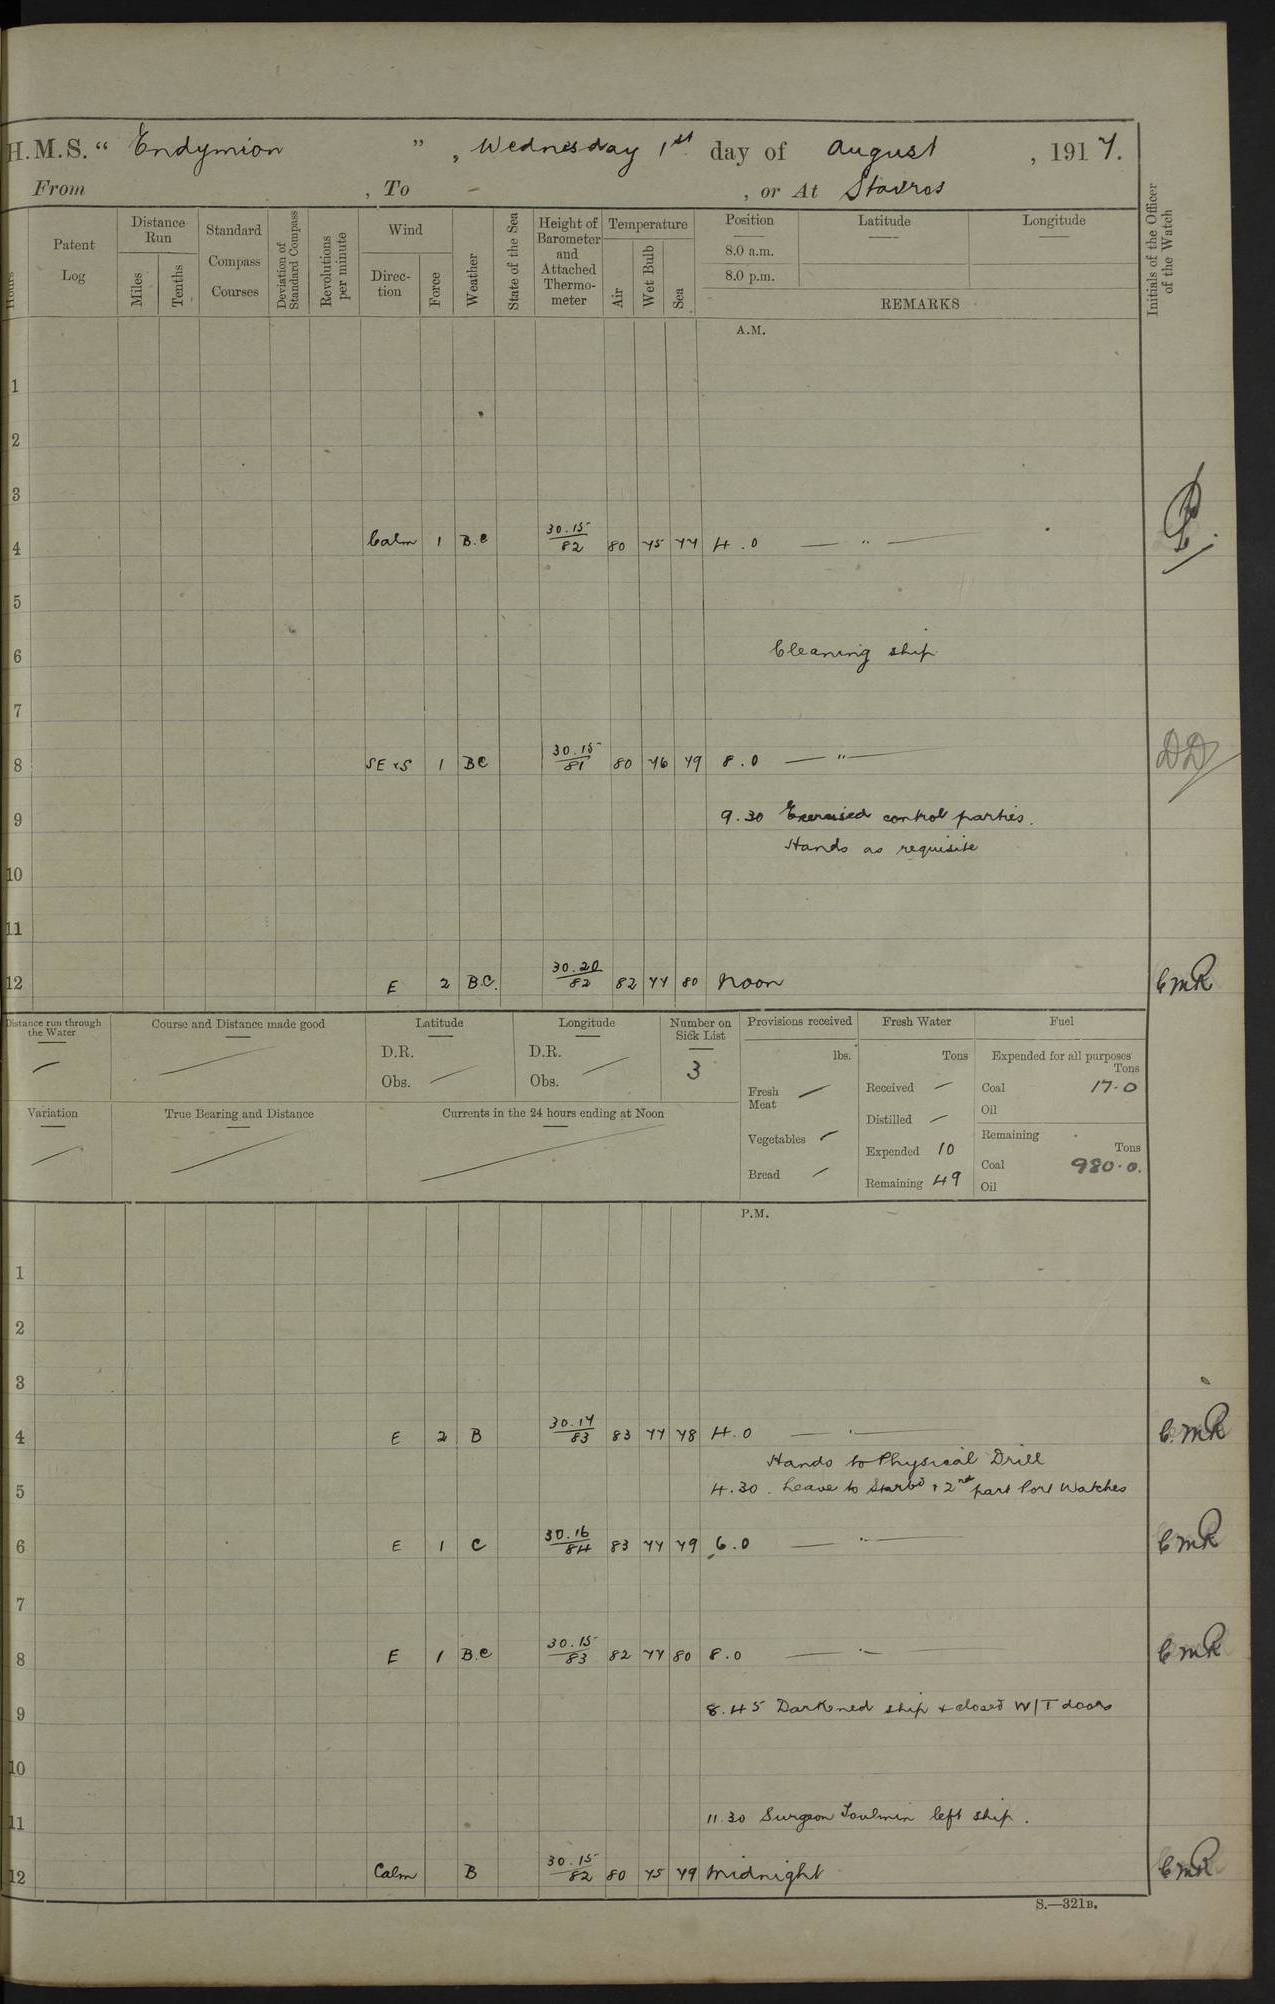 H.M.S. “ Endymion ” , Wednesday 1st day of August , 1917.
From , To - , or At Stavros
Hours
Patent Log
Distance Run
Miles
Tenths
Standard Compass Courses
Deviation of Standard Compass
Revolutions per minute
Wind
Direc-tion
Force
Weather
State of the Sea
Height of Barometer and Attached Thermo-meter
Temperature
Air
Wet Bulb
Sea
Position
8.0 a.m.
8.0 p.m.
Latitude
Longitude
REMARKS
Initials of the Officer of the Watch
A.M.
1
2
3
4 Calm 1 B.C 30.15/82 80 75 77 4.0 — " —
5
6 Cleaning ship
7
8 SE x S 1 BC 30.15/81 80 76 79 8.0 — " — DD
9 9.30 Exercised control parties.
Hands as requisite
10
11
12 E 2 B.C. 30.20/82 82 77 80 Noon CMR
Distance run through the Water
Course and Distance made good
Latitude
D.R.
Obs.
Longitude
D.R.
Obs.
Number on Sick List
3
Provisions received
lbs.
Fresh Meat
Vegetables
Bread
Fresh Water
Tons
Received
Distilled
Expended 10
Remaining 49
Fuel
Expended for all purposes
Tons
Coal 17.0
Oil
Remaining
Tons
Coal 980.0.
Oil
Variation
True Bearing and Distance
Currents in the 24 hours ending at Noon
P.M.
1
2
3
4 E 2 B 30.17/83 83 77 78 4.0 — " — C.MR
Hands to Physical Drill
5 4.30. Leave to Starbd & 2nd part Port Watches
6 E 1 C 30.16/84 83 77 79 6.0 — " — CMR
7
8 E 1 B.C 30.15/83 82 77 80 8.0 — " — CMR
9 8.45 Darkened ship & closed W/T doors
10
11 11.30 Surgeon Toulmin left ship.
12 Calm B 30.15/82 80 75 79 Midnight CMR
S.—321B.